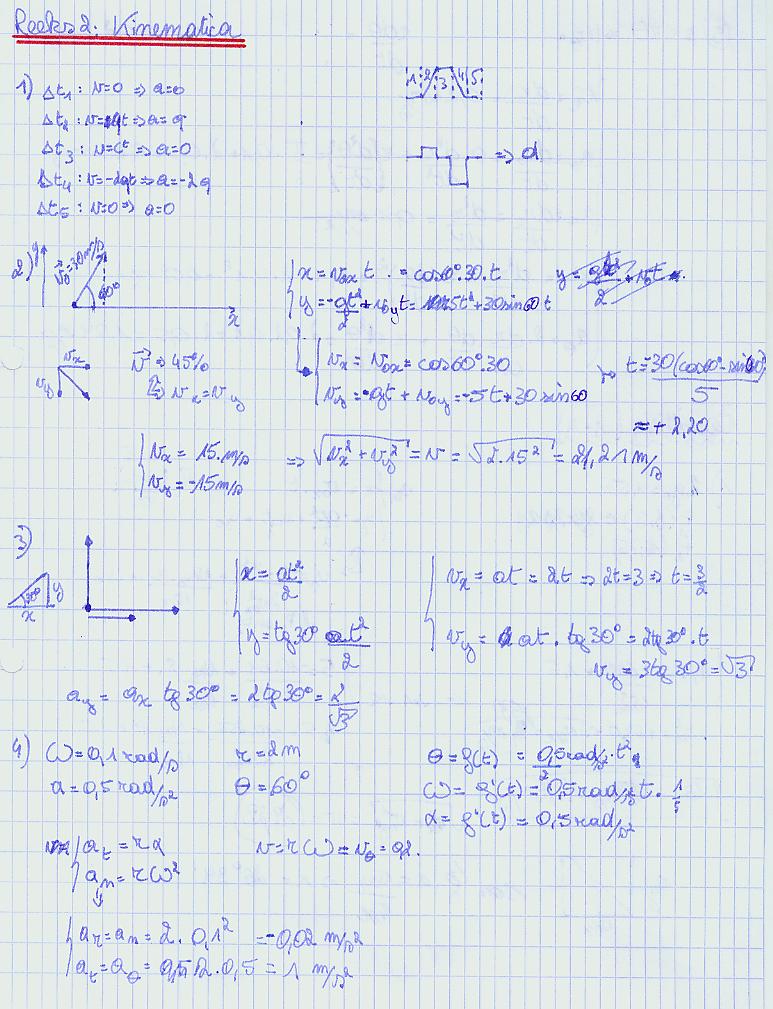 Reeks 2: Kinematica
1) Δt₁ : v=0 ⇒ a=0
1 2 3 4 5
Δt₂ : v=gt ⇒ a=g
Δt₃ : v=Cᵗ ⇒ a=0
⇒ d
Δt₄ : v=-2gt ⇒ a=-2g
Δt₅ : v=0 ⇒ a=0
2) y v₀=30m/s 60° x
x = v₀ₓ t = cos60°.30.t
y = -gt²/2 + v₀y t = 5t² + 30 sin60 t
vₓ vy
v ⇒ 45%
⇔ vₓ = vy
vₓ = v₀ₓ = cos60°.30
vy = -gt + v₀y = -5t + 30 sin60
t = -30(cos60° - sin60°)/5
≈ + 2,20
vₓ = 15 m/s
vy = -15 m/s
⇒ √(vₓ² + vy²) = v = √(2.15²) = 21,21 m/s
3)
30° y x
x = at²/2
y = tg30° at²/2
vₓ = at = 2t ⇒ 2t = 3 ⇒ t = 3/2
vy = at . tg30° = 2tg30° . t
vy = 3tg30° = √3
ay = ax tg30° = 2tg30° = 2/√3
4) ω = 0,1 rad/s r = 2m θ = f(t) = 0,5rad/s²/2 . t²
a = 0,5 rad/s² θ = 60° ω = f'(t) = 0,5rad/s² t .
α = f''(t) = 0,5 rad/s²
at = rα v = rω = vθ = 0,2.
an = rω²
ar = an = 2 . 0,1² = -0,02 m/s²
at = aθ = 2.0,5 = 1 m/s²